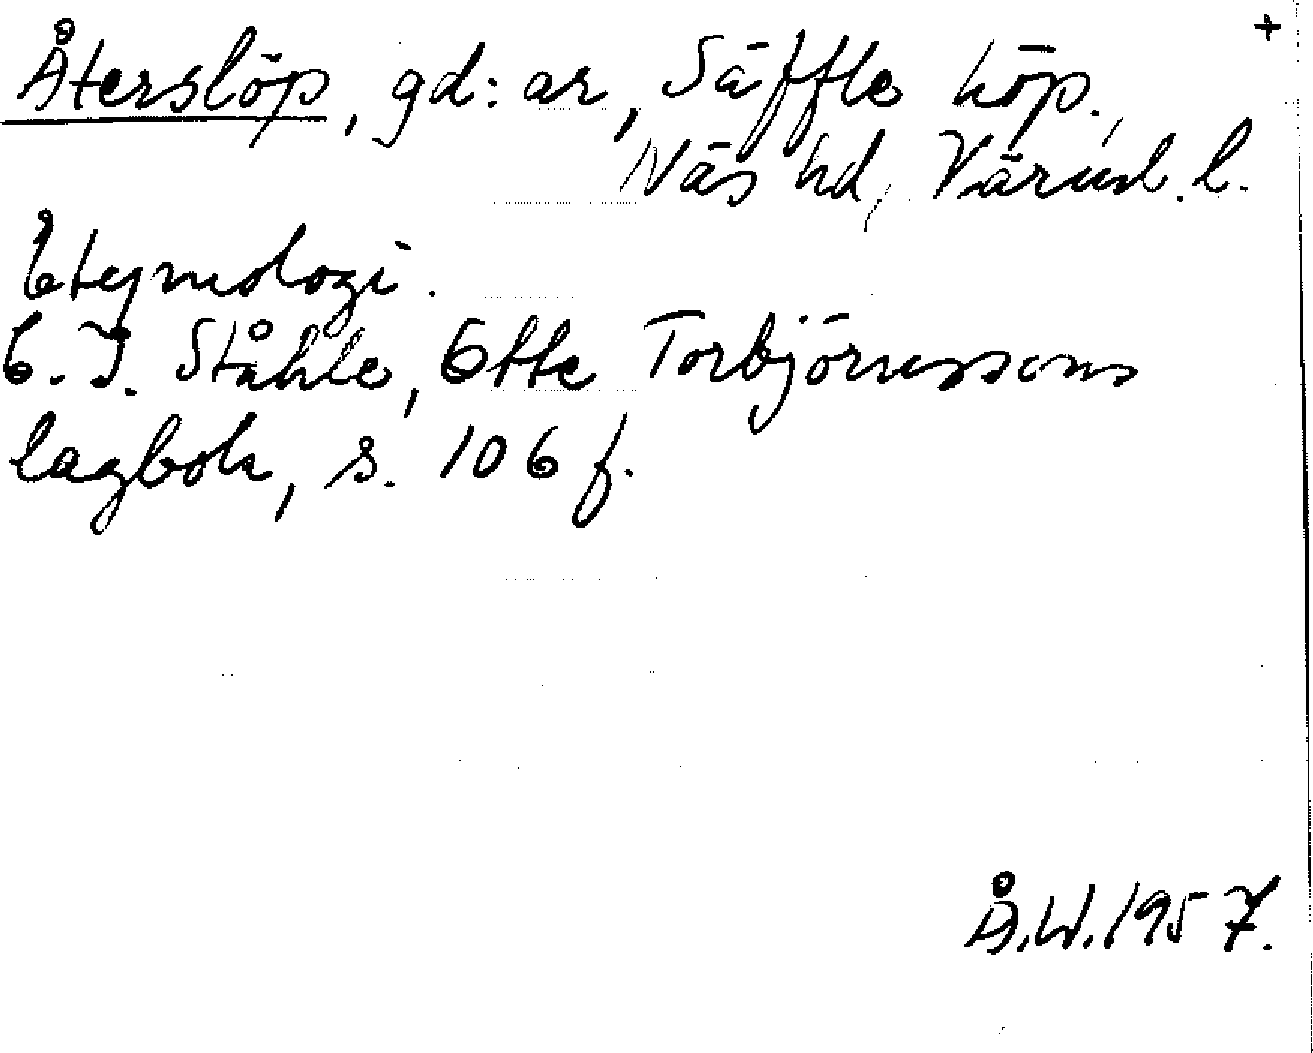 +
Återslöp, gd:ar, Säffle köp.,
Näs hd, Värml. l.
Etymologi.
C. I. Ståhle, Ett Torbjörnssons
lagbok, s. 106 f.
Å.W. 1957.